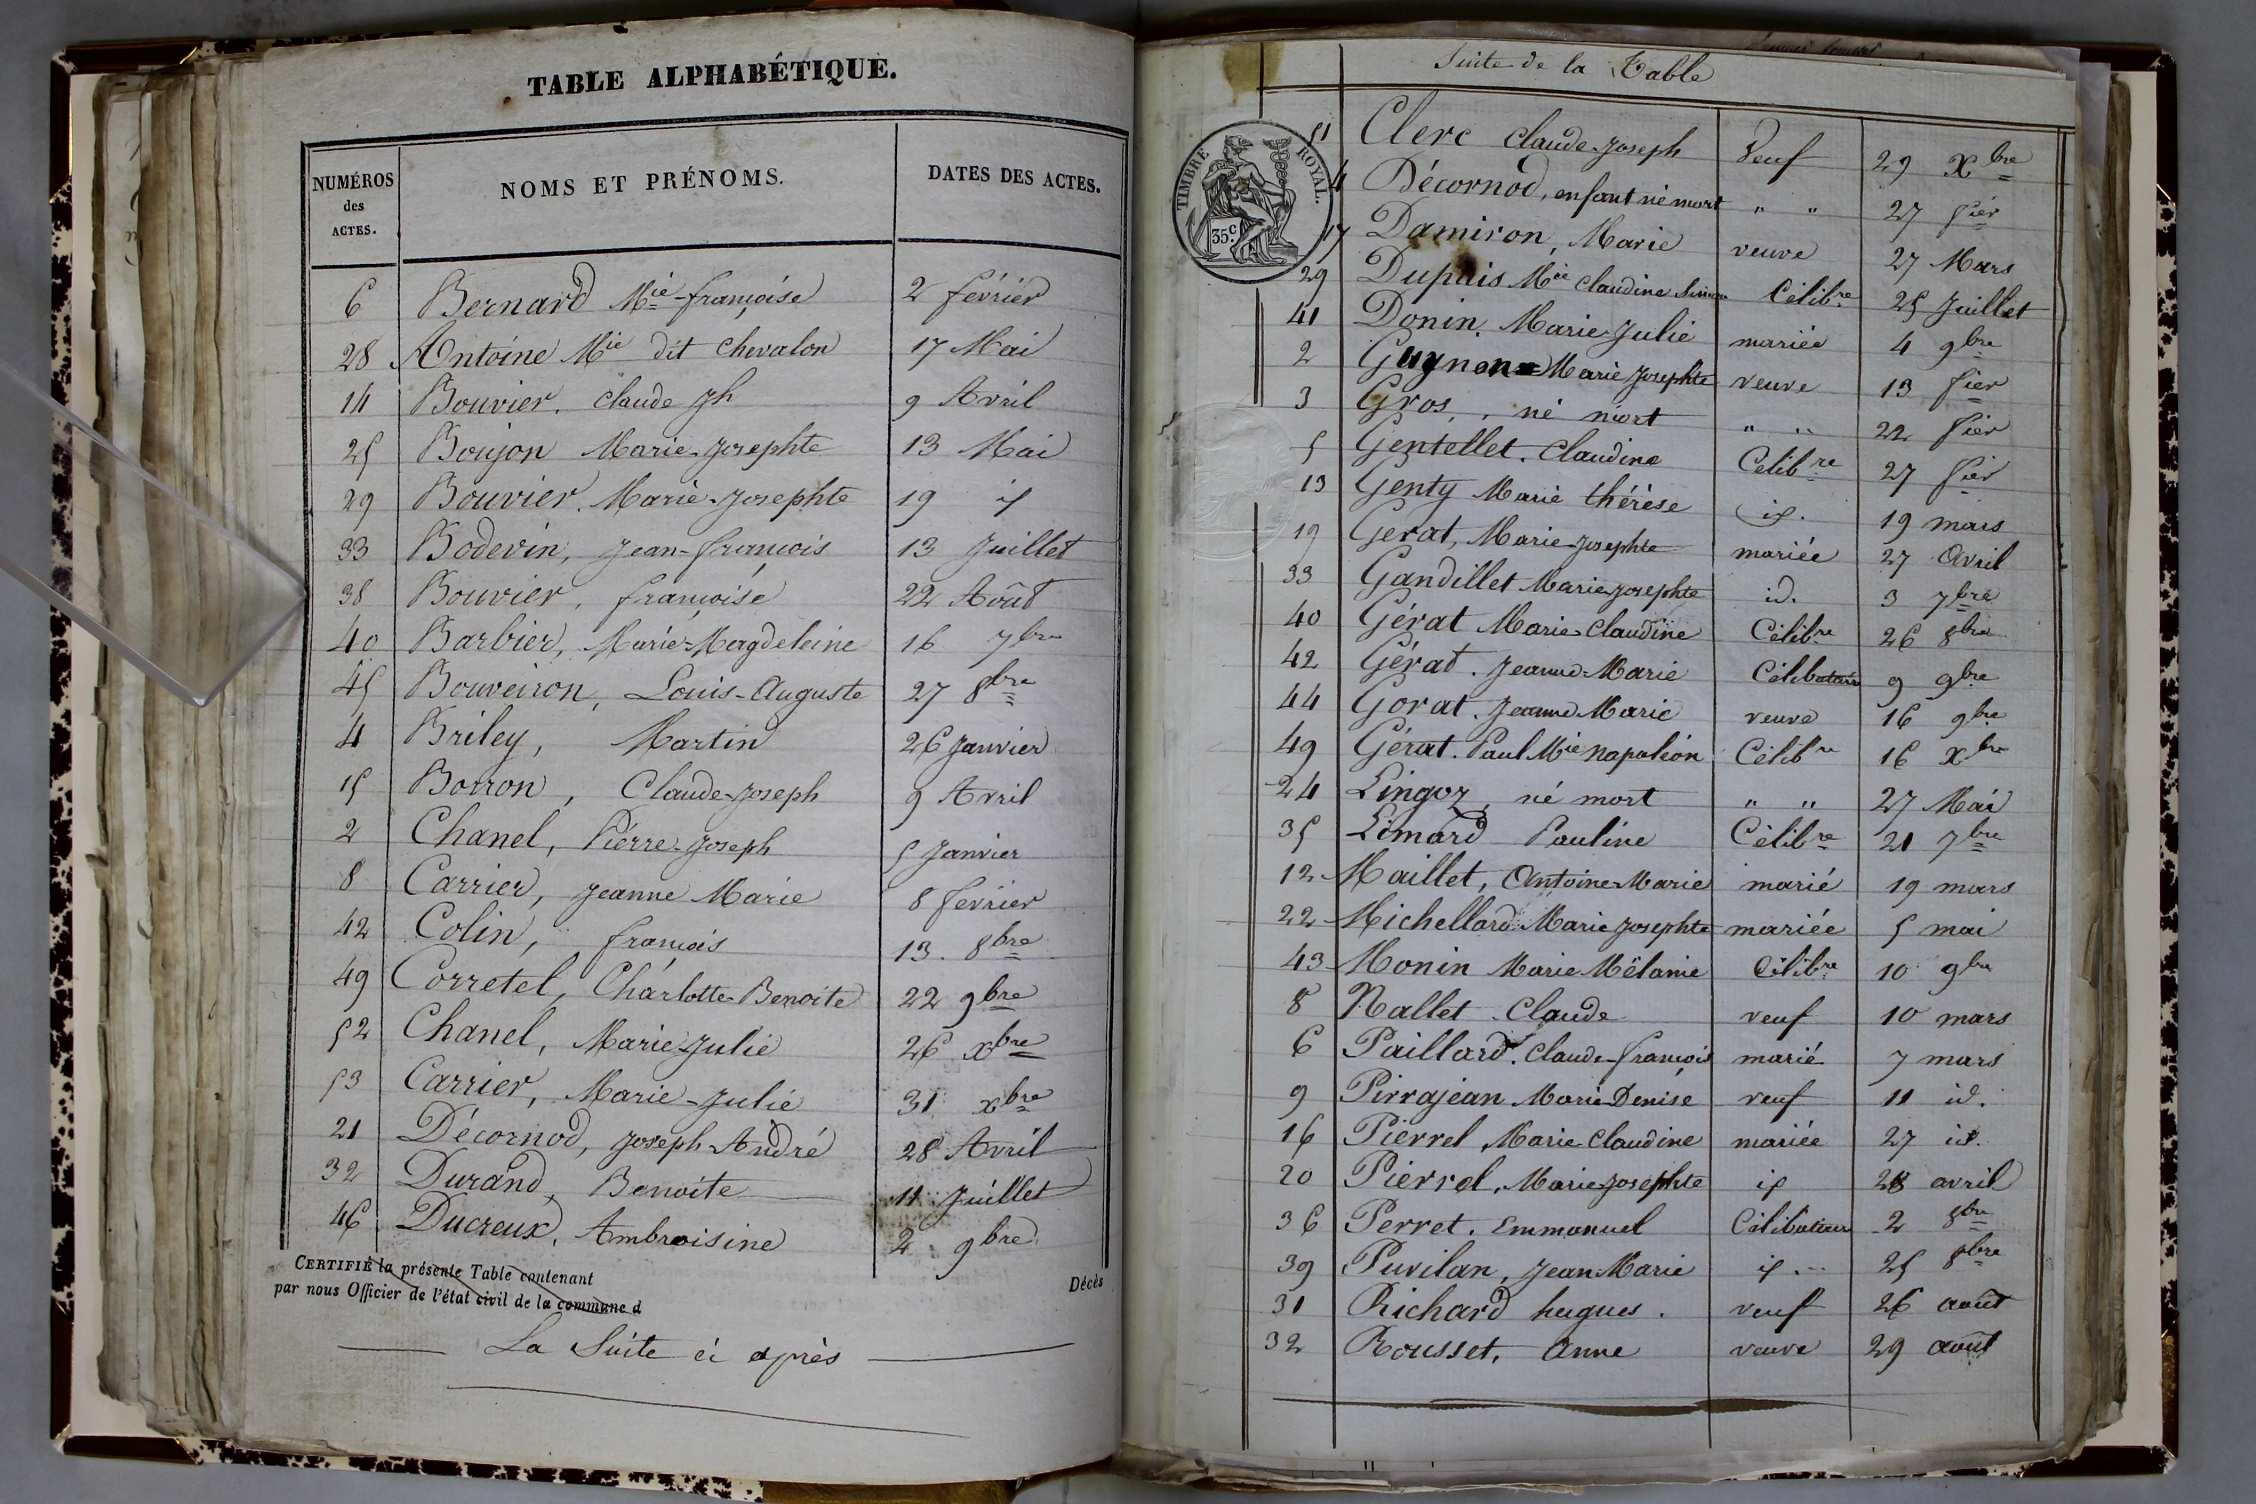 TABLE ALPHABÉTIQUE.
NUMÉROS des ACTES. NOMS ET PRÉNOMS. DATES DES ACTES.
6 Bernard Mie-françoise 2 février
28 Antoine Mie dit Chevalon 17 Mai
14 Bouvier, Claude Jh 9 Avril
25 Boujon Marie-Josephte 13 Mai
29 Bouvier, Marie-Josephte 19 id
33 Bodevin, Jean-françois 13 Juillet
38 Bouvier, françoise 22 Août
40 Barbier, Marie-Magdeleine 16 7bre
45 Bouveiron, Louis-Auguste 27 8bre
4 Briley, Martin 26 Janvier
15 Borron, Claude-Joseph 9 Avril
2 Chanel, Pierre-Joseph 5 Janvier
8 Carrier, Jeanne Marie 8 février
42 Colin, françois 13. 8bre
49 Corretel, Charlotte-Benoite 22 9bre
52 Chanel, Marie-Julie 26 xbre
53 Carrier, Marie-Julie 31 xbre
21 Décornod, Joseph-André 28 Avril
32 Durand, Benoite 11 Juillet
46 Ducreux, Ambroisine 2 9bre
CERTIFIÉ la présente Table contenant Décès
par nous Officier de l'état civil de la commune d
La Suite ci après
Suite de la Table
TIMBRE ROYAL.
35c
51 Clerc Claude-Joseph Veuf 29 Xbre
4 Décornod, enfant né mort " " 27 fier
17 Damiron, Marie veuve 27 Mars
29 Dupuis Mie Claudine Célibre 25 Juillet
41 Donin. Marie-Julie mariée 4 9bre
2 Guynon Marie Josephte veuve 13 fier
3 Gros, né mort " " 22 fier
5 Gentellet. Claudine Celibre 27 fier
13 Genty Marie thérèse id. 19 mars
19 Gerat, Marie-Josephte mariée 27 Avril
33 Gandillet Marie Josephte id. 3 7bre
40 Gérat Marie-Claudine Célibre 26 8bre
42 Gérat. Jeanne-Marie Célibataire 9 9bre
44 Gorat. Jeanne Marie veuve 16 9bre
49 Gérat. Paul Mie Napoléon Célibre 16 Xbre
24 Lingoz, né mort " " 27 Mai
35 Limard Pauline Célibre 21 7bre
12 Maillet, Antoine-Marie marié 19 mars
22 Michellard Marie Josephte mariée 5 mai
43 Monin Marie Mélanie Célibre 10 9bre
8 Nallet Claude veuf 10 mars
6 Paillard. Claude-françois marié 7 mars
9 Pirrajean Marie Denise veuf 11 id.
16 Pierrel, Marie-Claudine mariée 27 id.
20 Pierrel, Marie-Josephte id 28 avril
36 Perret. Emmanuel Célibataire 2 8bre
39 Puvilan, Jean Marie id 25 8bre
31 Richard hugues. veuf 26 août
32 Rousset, Anne veuve 29 août